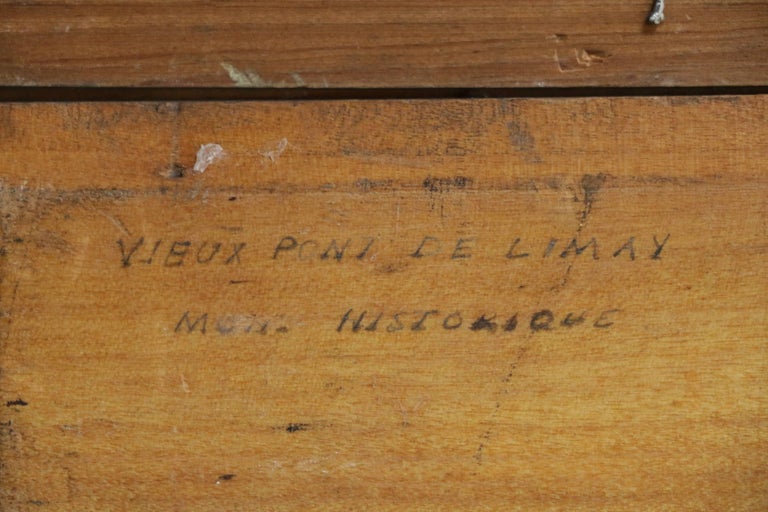 VIEUX PONT DE LIMAY
MON. HISTORIQUE